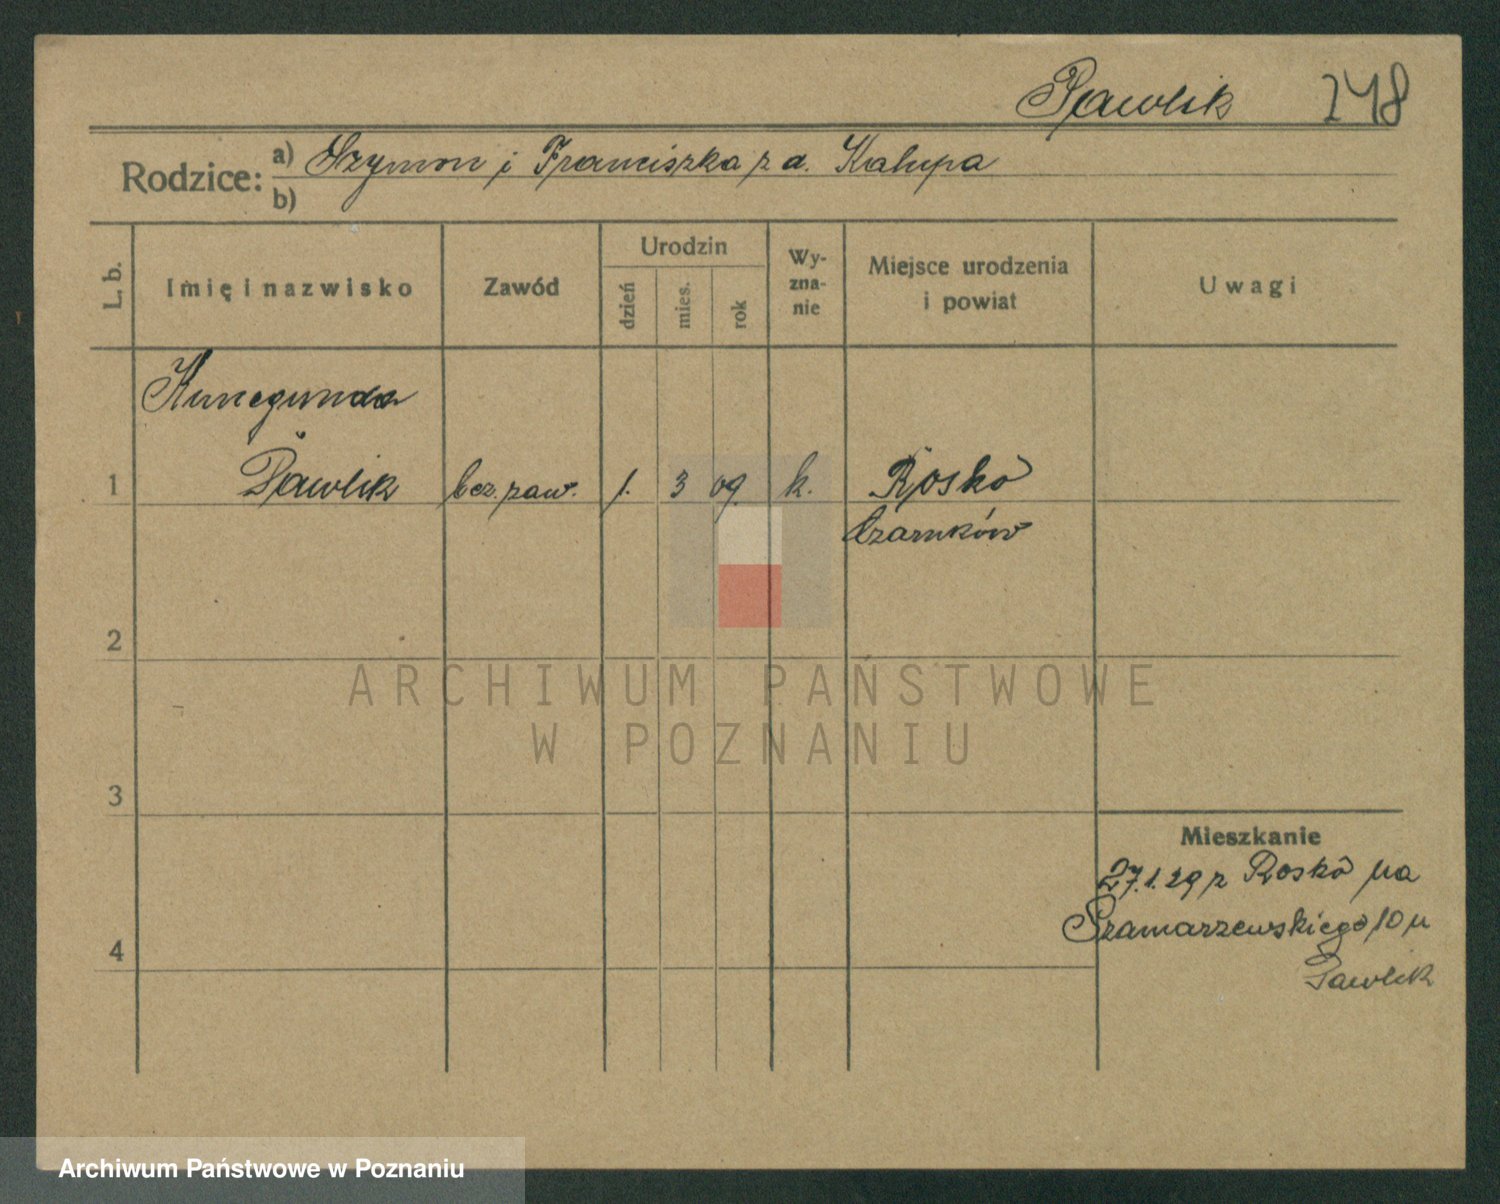 Pawlik 248
Rodzice: a) Szymon i Franciszka z d. Kałupa
b)
L. b.
Imię i nazwisko
Zawód
Urodzin
dzień
mies.
rok
Wy-
zna-
nie
Miejsce urodzenia
i powiat
Uwagi
Kunegunda
1 Pawlik bez. zaw. 1. 3 09 k. Rosko
Czarnków
2
3
4
Mieszkanie
27.1.29 z Rosko na
Szamarzewskiego 10 u
Pawlik
ARCHIWUM PAŃSTWOWE
W POZNANIU
Archiwum Państwowe w Poznaniu